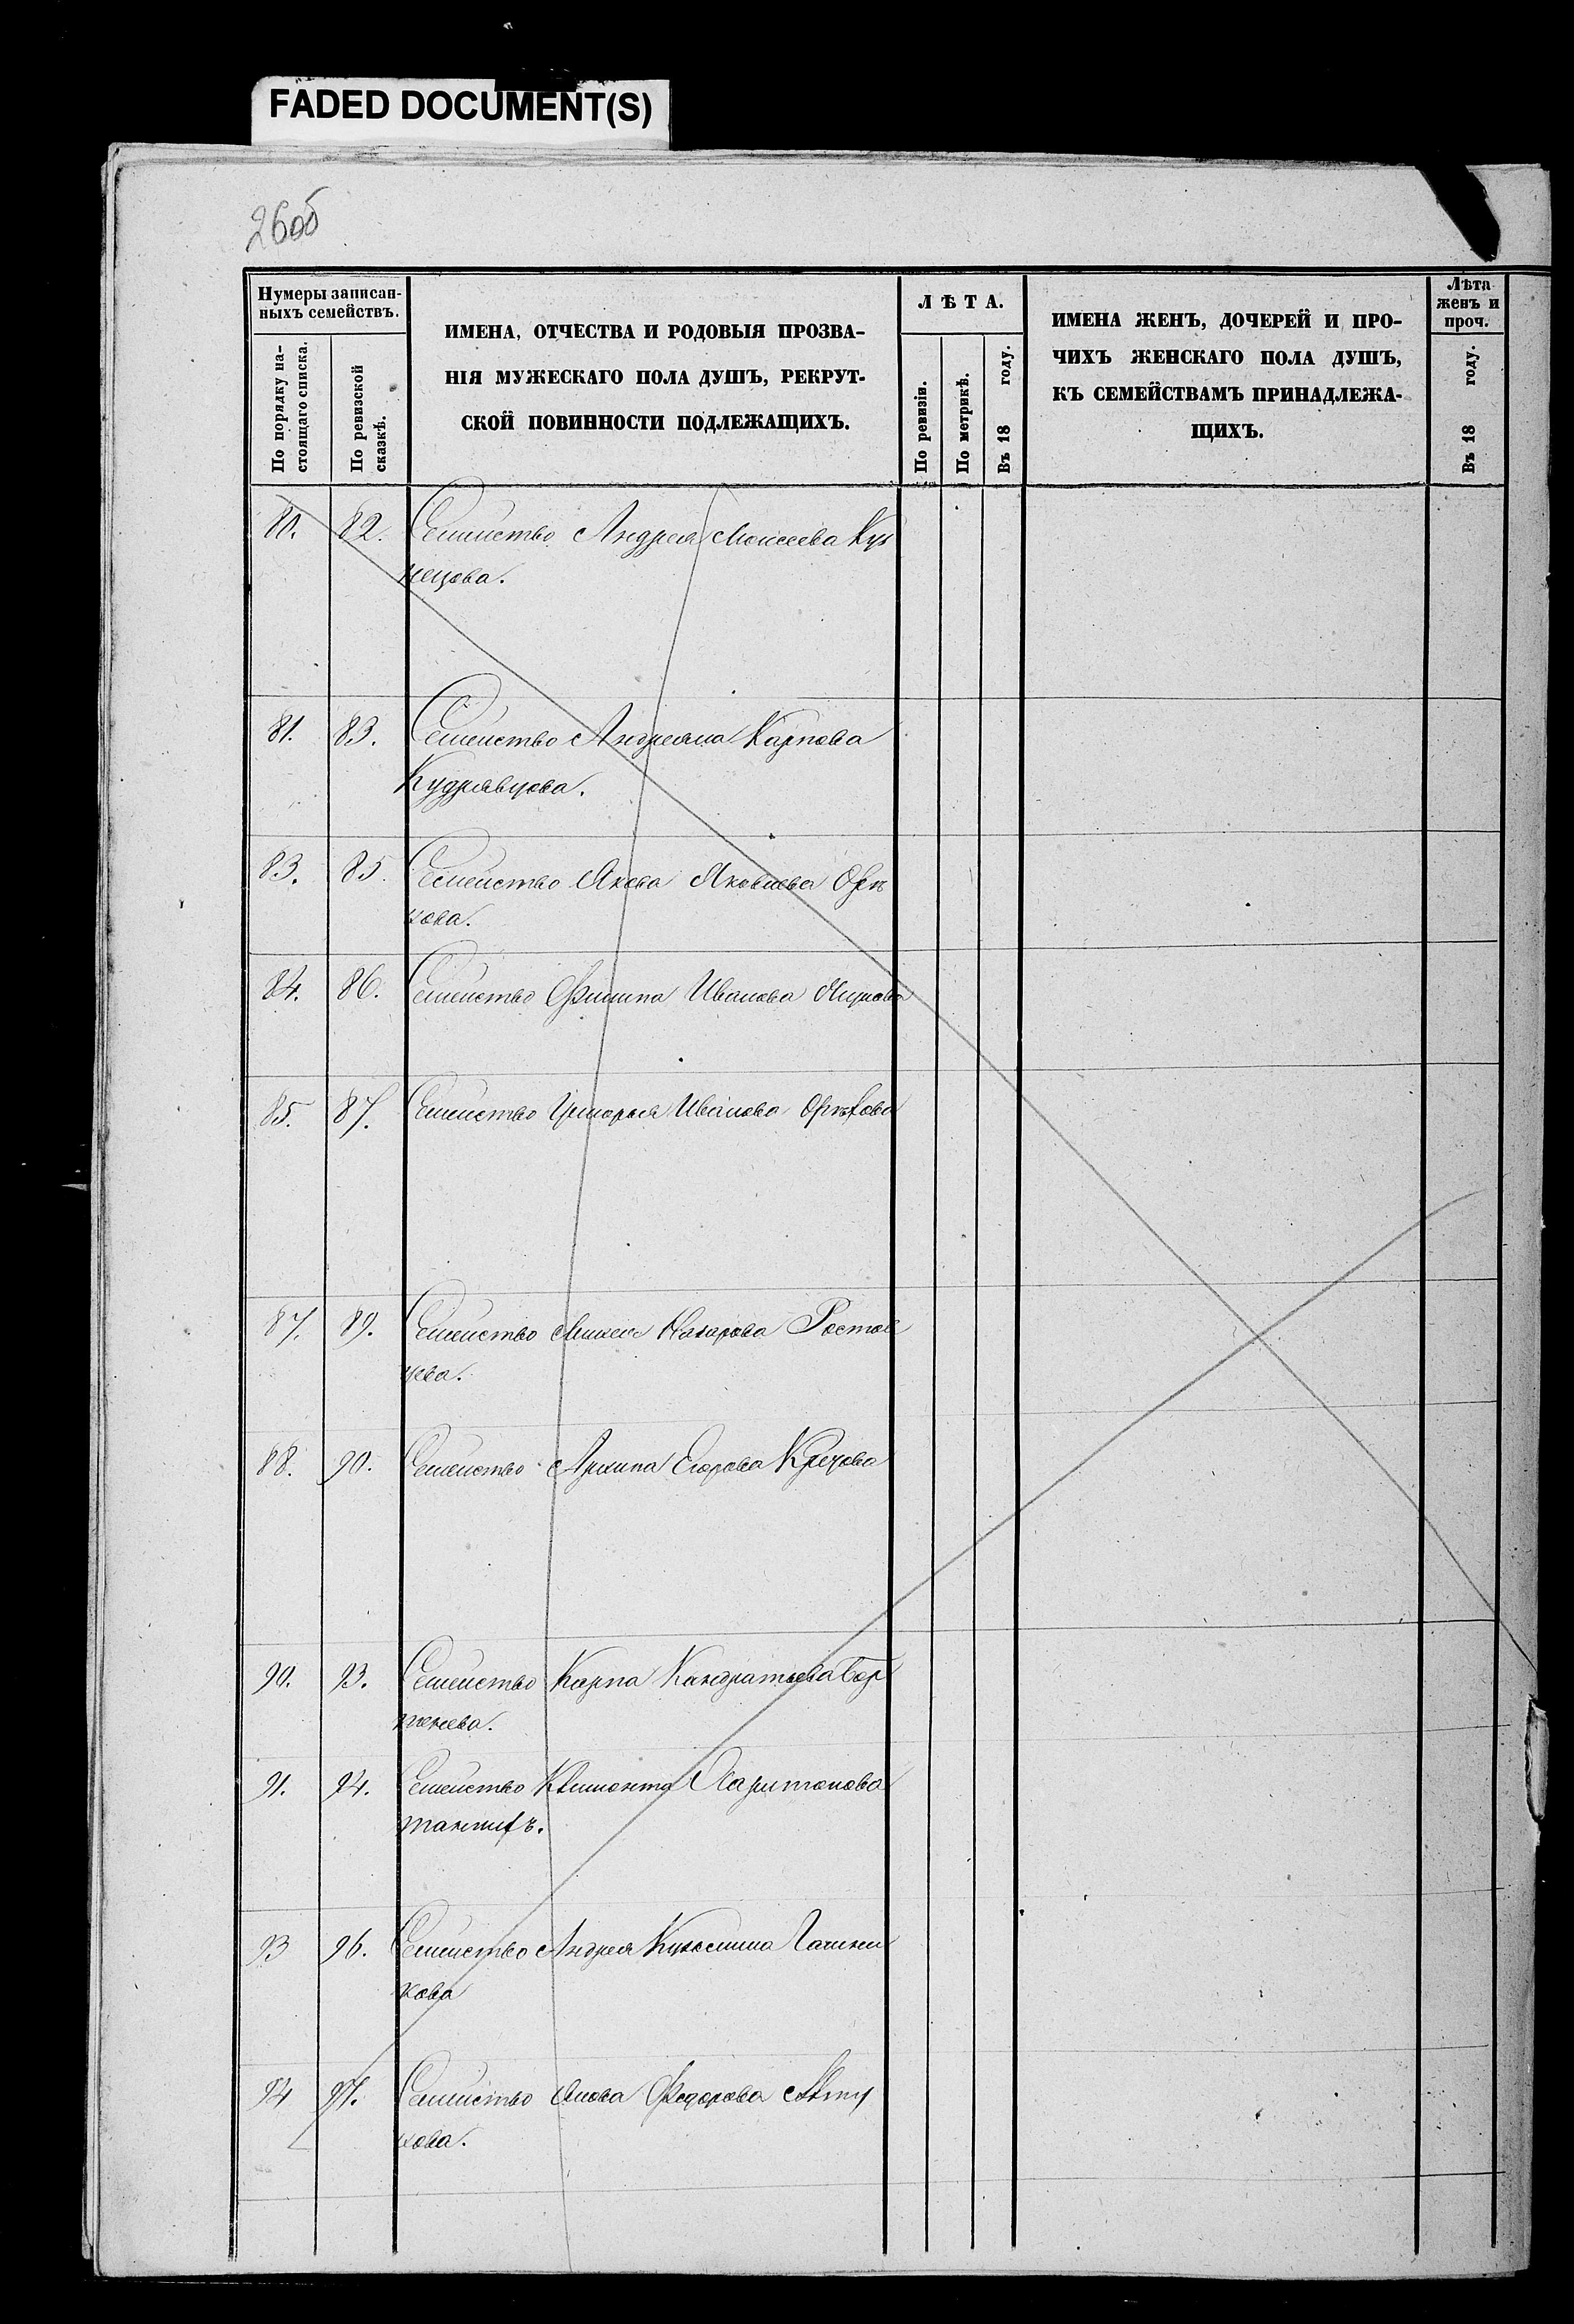 FADED DOCUMENT(S)
260б
Нумеры записан-
ныхъ семействъ.
По порядку на-
стоящаго списка.
По ревизской
сказкѣ.
ИМЕНА, ОТЧЕСТВА И РОДОВЫЯ ПРОЗВА-
НІЯ МУЖЕСКАГО ПОЛА ДУШЪ, РЕКРУТ-
СКОЙ ПОВИННОСТИ ПОДЛЕЖАЩИХЪ.
ЛѢТА.
По ревизіи.
По метрикѣ.
Въ 18 году.
ИМЕНА ЖЕНЪ, ДОЧЕРЕЙ И ПРО-
ЧИХЪ ЖЕНСКАГО ПОЛА ДУШЪ,
КЪ СЕМЕЙСТВАМЪ ПРИНАДЛЕЖА-
ЩИХЪ.
Лѣта
женъ и
проч.
Въ 18 году.
80. 82. Семейство Андрея Моисеева Куз
нецова.
81. 83. Семейство Андреяна Карпова
Кудрявцова.
83. 85. Семейство Якова Яковлева Орѣ
хова.
84. 86. Семейство Филипа Иванова
85. 87. Семейство Григорья Иванова Орѣхова
87. 89. Семейство Назарова Ростов
цева.
88. 90. Семейство Архипа Егорова
90. 93. Семейство Карпа Кандратьева
91. 94. Семейство Климонта Харитонова
93 96. Семейство Андрея Кузьмина
кова
94 97. Семейство Федорова
хова.